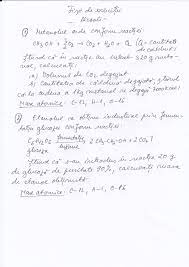 Fişă de exerciţii
Alcooli
① Metanolul arde conform reacţiei:
CH3OH + 3/2 O2 → CO2 + H2O + Q (Q = cantitatea
de căldură)
Ştiind că în reacţie au intrat 320 g meta-
nol, calculaţi:
a) Volumul de CO2 degajat
b) Cantitatea de căldură degajată, ştiind
că la arderea a 1 kg metanol se degajă
Mase atomice: C-12, H-1, O-16
② Etanolul se obţine industrial prin fermen-
taţia glucozei conform reacţiei:
C6H12O6 → 2 CH3-CH2-OH + 2 CO2↑
glucoza
Ştiind că s-au introdus în reacţie 20 g
de glucoză de puritate 90%, calculaţi masa
de etanol obţinută.
Mase atomice: C-12, H-1, O-16